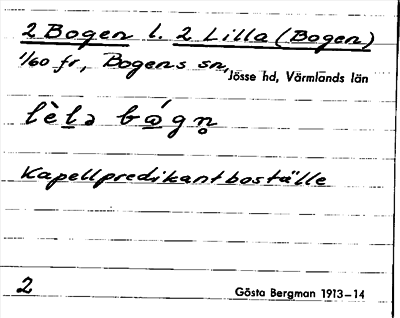 2 Bogen l. 2 Lilla (Bogen)
1/60 fr, Bogens sn, Jösse hd, Värmlands län
lèlə bógn̥
Kapellpredikantboställe
2 Gösta Bergman 1913–14